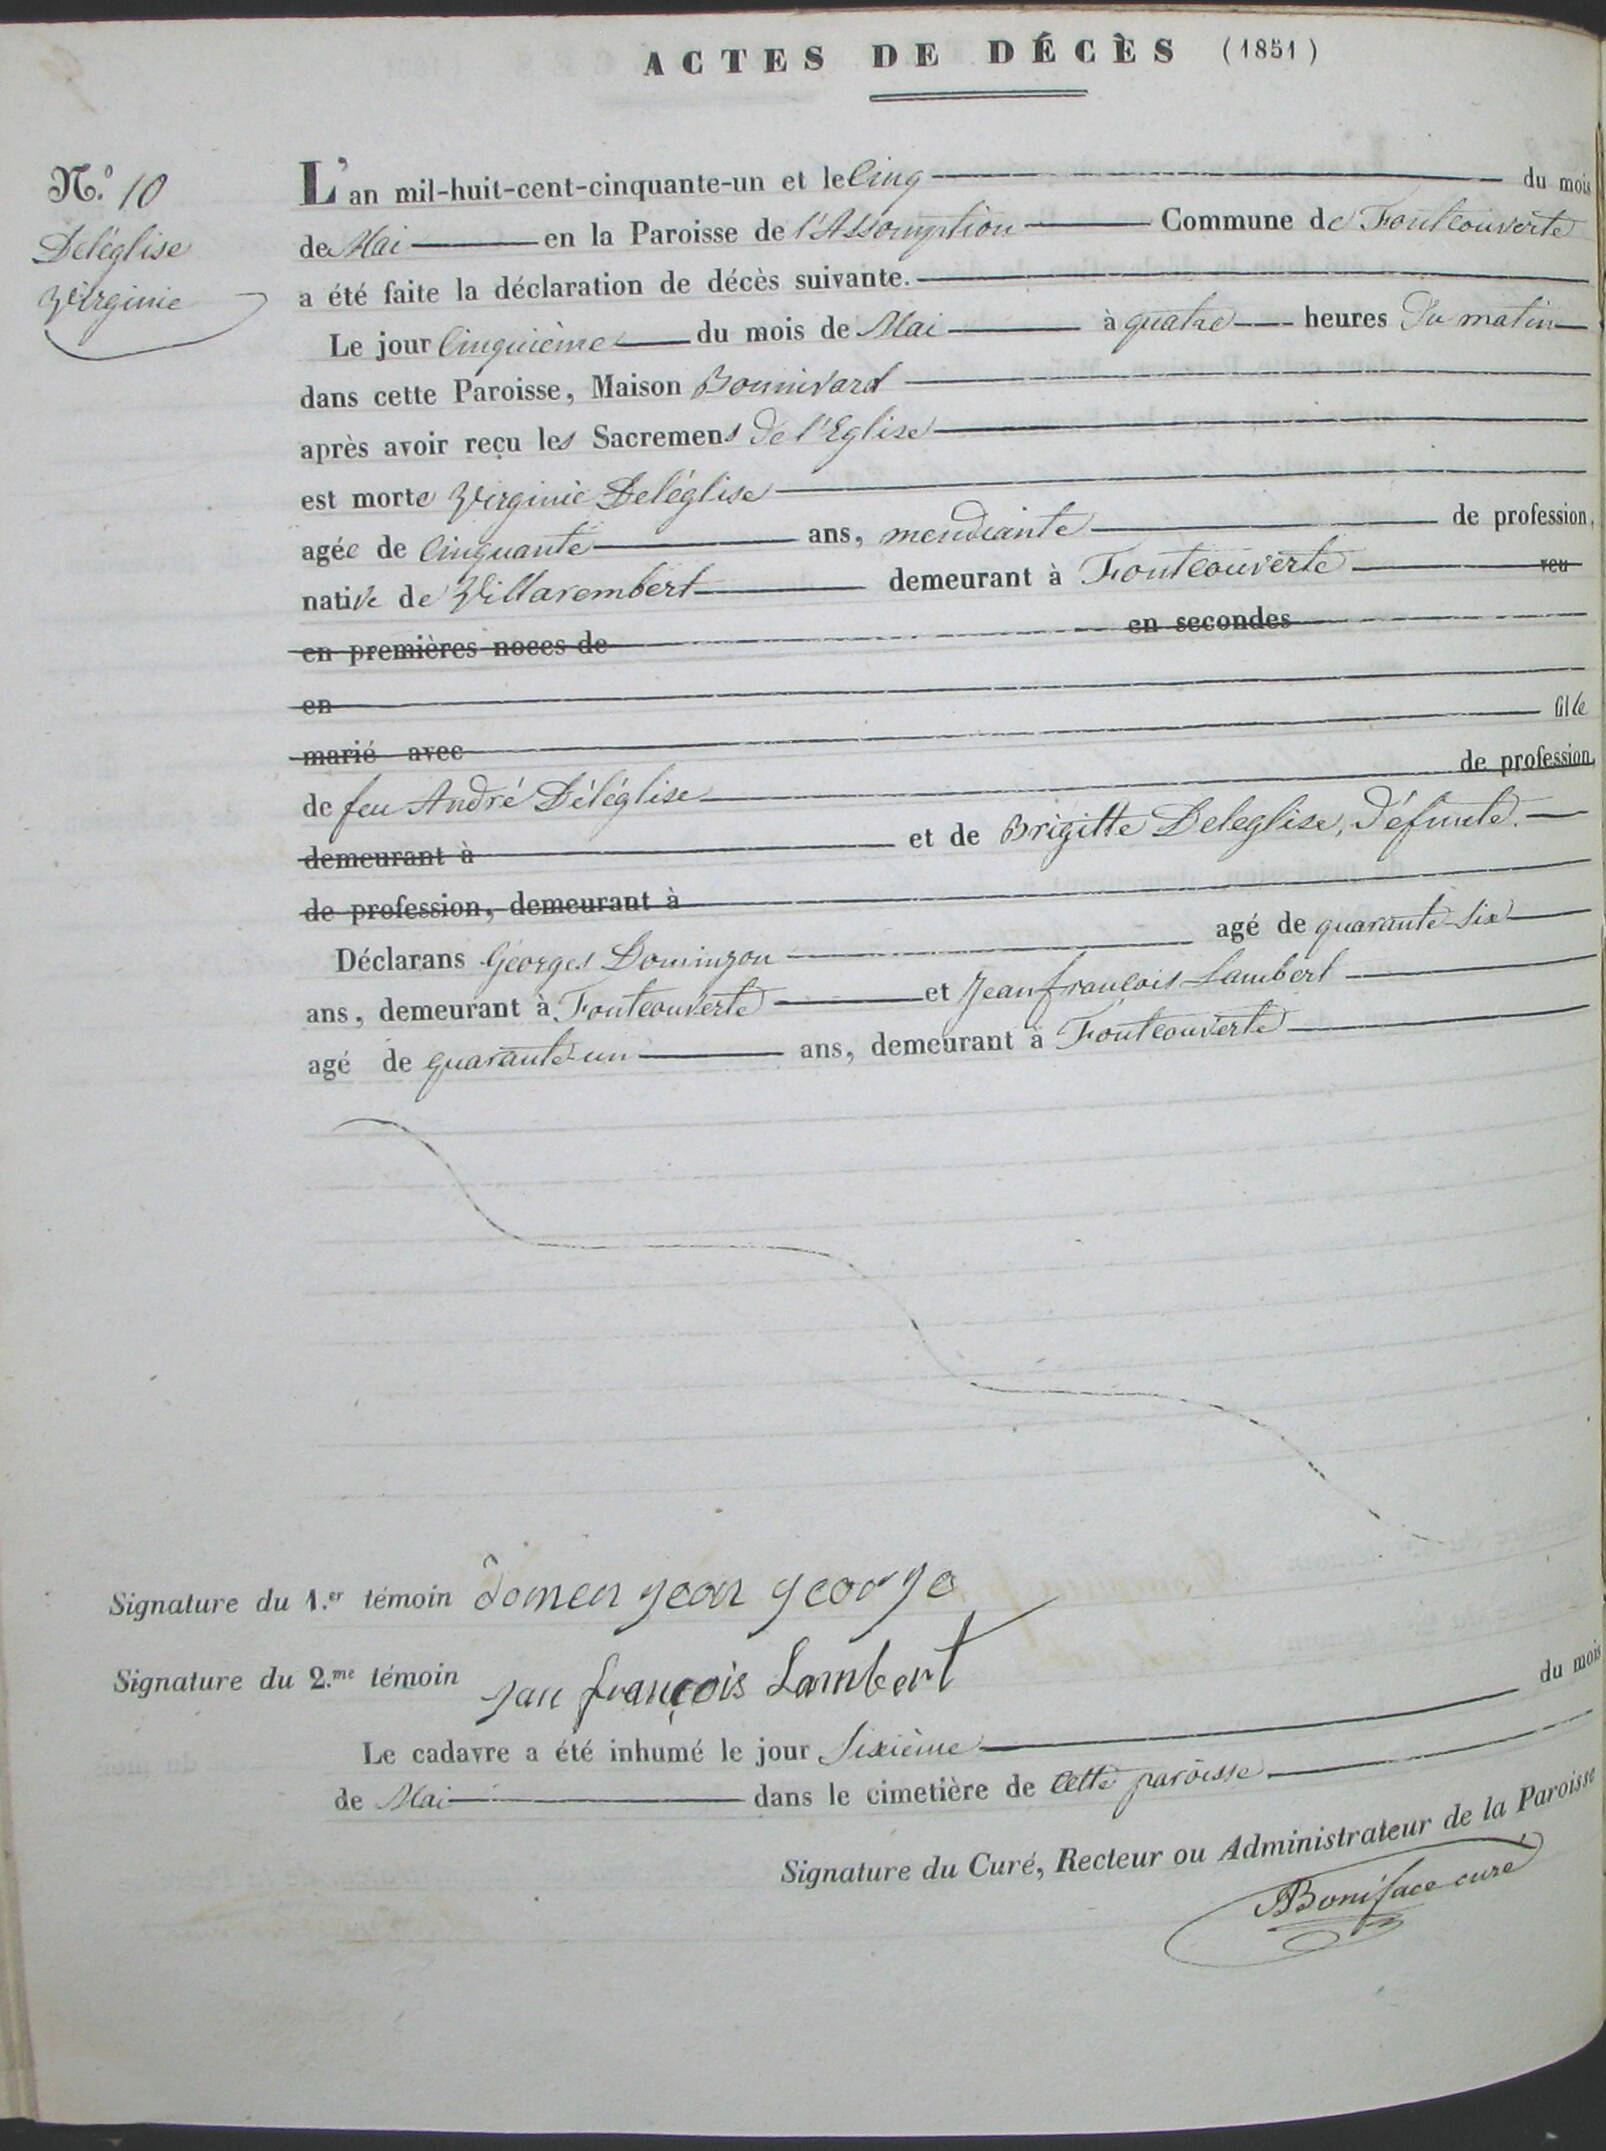 ACTES DE DÉCÈS (1851)
N.º 10
Deléglise
Virginie
L'an mil-huit-cent-cinquante-un et le Cinq du mois
de Mai en la Paroisse de l'Assomption Commune de Fontcouverte
a été faite la déclaration de décès suivante.
Le jour Cinquième du mois de Mai à quatre heures Du matin
dans cette Paroisse, Maison Bonnivard
après avoir reçu les Sacremens de l'Eglise
est morte Virginie Deléglise
agée de Cinquante ans, mendiante de profession,
native de Villarembert demeurant à Fontcouverte veu
en premières noces de en secondes
en
marié avec fille
de feu André Déléglise de profession,
demeurant à et de Brigitte Deleglise, Défunte.
de profession, demeurant à
Déclarans Georges Dominzon agé de quarante-Six
ans, demeurant à Fontcouverte et Jean françois Lambert
agé de quarante-un ans, demeurant à Fontcouverte
Signature du 1.er témoin domen jean george
Signature du 2.me témoin jan françois Lambert
Le cadavre a été inhumé le jour Sixième du mois
de Mai dans le cimetière de Cette paroisse
Signature du Curé, Recteur ou Administrateur de la Paroisse
Boniface curé